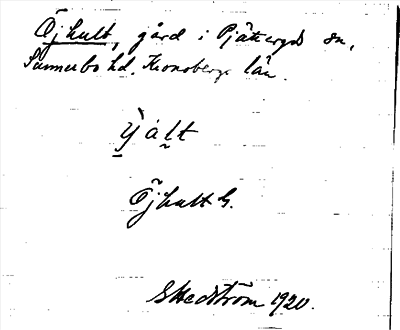 Öjhult, gård i Pjätteryds sn,
Sunnerbo hd. Kronobergs län.
Öjhult G.
Hedström 1920.